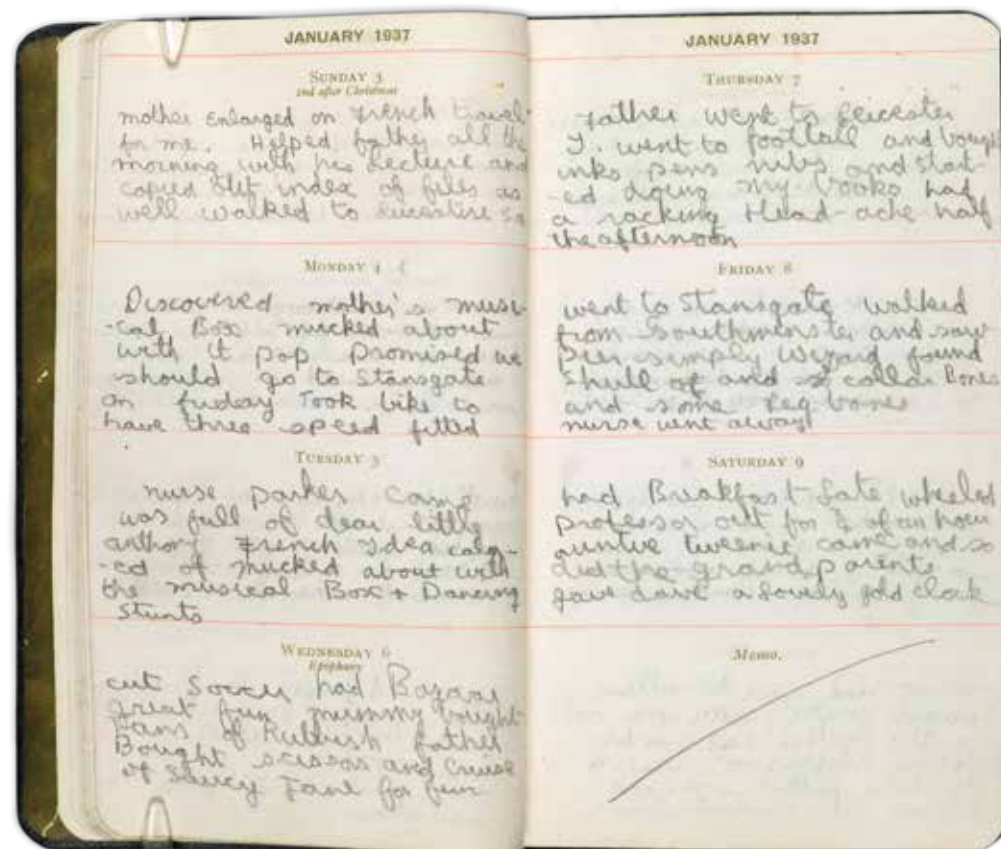 JANUARY 1937
SUNDAY 3
2nd after Christmas
mother enlarged on French travel
for me. Helped father all the
morning with his Lecture and
copied slip index of files as
well walked to
MONDAY 4
Discovered mother's musi-
-cal Box mucked about
with it pop promised we
should go to Stansgate
on friday Took bike to
have three speed fitted
TUESDAY 5
nurse parker came
was full of dear little
anthony French idea
-ed of mucked about with
the musical Box + Dancing
stunts
WEDNESDAY 6
Epiphany
cut Soccer had Bazaar
great fun mummy bought
of Rubbish father
Bought scissors and Cruise
of Saucy Jane for fun
JANUARY 1937
THURSDAY 7
Father went to Leicester
I. went to football and
inks pens nibs and start-
-ed doing my books had
a racking Head-ache half
the afternoon
FRIDAY 8
went to Stansgate walked
from Southminster and saw
Pier simply wizard found
Skull of and collar Bones
and some leg bones
nurse went away
SATURDAY 9
had Breakfast Late wheeled
professor out for of an hour
auntie tweenie came and so
did the grand parents
gave dave a lovely gold clock
Memo.